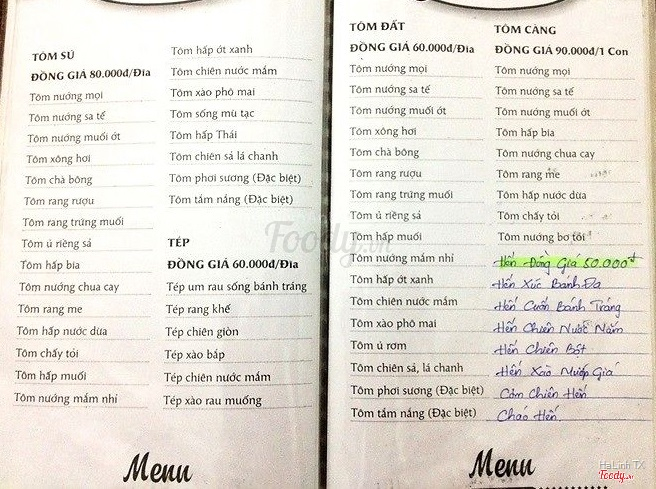 TÔM SÚ
ĐỒNG GIÁ 80.000đ/Đĩa
Tôm nướng mọi
Tôm nướng sa tế
Tôm nướng muối ớt
Tôm xông hơi
Tôm chà bông
Tôm rang rượu
Tôm rang trứng muối
Tôm ủ riềng sả
Tôm hấp bia
Tôm nướng chua cay
Tôm rang me
Tôm hấp nước dừa
Tôm chấy tỏi
Tôm hấp muối
Tôm nướng mắm nhỉ
Tôm hấp ớt xanh
Tôm chiên nước mắm
Tôm xào phô mai
Tôm sống mù tạc
Tôm hấp Thái
Tôm chiên sả lá chanh
Tôm phơi sương (Đặc biệt)
Tôm tắm nắng (Đặc biệt)
TÉP
ĐỒNG GIÁ 60.000đ/Đĩa
Tép um rau sống bánh tráng
Tép rang khế
Tép chiên giòn
Tép xào bắp
Tép chiên nước mắm
Tép xào rau muống
Menu
TÔM ĐẤT
ĐỒNG GIÁ 60.000đ/Đĩa
Tôm nướng mọi
Tôm nướng sa tế
Tôm nướng muối ớt
Tôm xông hơi
Tôm chà bông
Tôm rang rượu
Tôm rang trứng muối
Tôm ủ riềng sả
Tôm hấp muối
Tôm nướng mắm nhỉ
Tôm hấp ớt xanh
Tôm chiên nước mắm
Tôm xào phô mai
Tôm ủ rơm
Tôm chiên sả, lá chanh
Tôm phơi sương (Đặc biệt)
Tôm tắm nắng (Đặc biệt)
TÔM CÀNG
ĐỒNG GIÁ 90.000đ/1 Con
Tôm nướng mọi
Tôm nướng sa tế
Tôm nướng muối ớt
Tôm hấp bia
Tôm nướng chua cay
Tôm rang me
Tôm hấp nước dừa
Tôm chấy tỏi
Tôm nướng bơ tỏi
Hến Đồng Giá 50.000đ
Hến Xúc Bánh Đa
Hến Cuốn Bánh Tráng
Hến Chiên Nước Mắm
Hến Chiên Bột
Hến Xào Mướp Giá
Cơm Chiên Hến
Cháo Hến
Menu
Foody.vn
HaLinh TX
Foody.vn